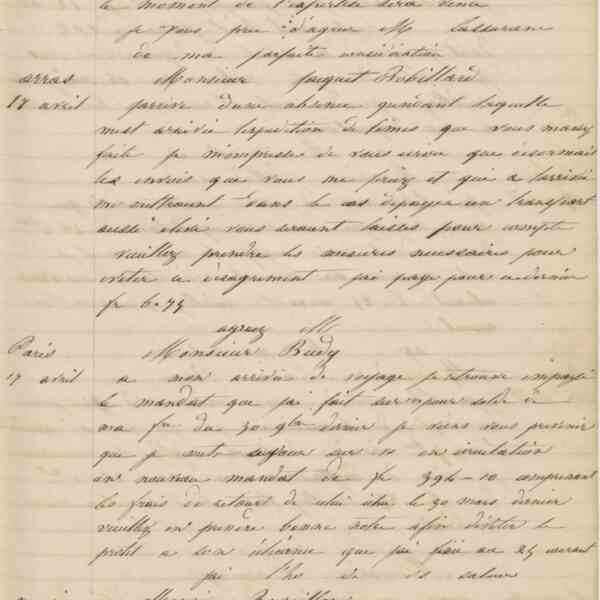 le moment de l'expertise sera venu
je vous prie d'agreer M l'assurance
de ma parfaite consideration
arras Monsieur Jacquet Robillard
17 avril j'arrive d'une absence pendant laquelle
m'est arrivée l'expedition de que vous mavez
faite je m'empresse de vous ecrire que desormais
les envois que vous me ferez et qui a l'arrivée
me mettraient dans le cas de payer un transport
aussi elevé vous seraient laisses pour compte
veuillez prendre les mesures necessaires pour
eviter ce desagrement j'ai payé pour ce dernier
fr 6.75
agreez M
Paris Monsieur Rudy
17 avril a mon arrivée de voyage je trouve impayé
le mandat que j'ai fait sur pour solde de
ma fre du 30 9bre dernier je viens vous prevenir
que je mets sur en circulation
un nouveau mandat de fr 394-10 comprenant
les frais de retour de celui du 30 mars dernier
veuillez en prendre bonne note afin d'eviter le
protet a son écheance que j'ai fixé au 25 courant
j'ai l'ho de vs saluer